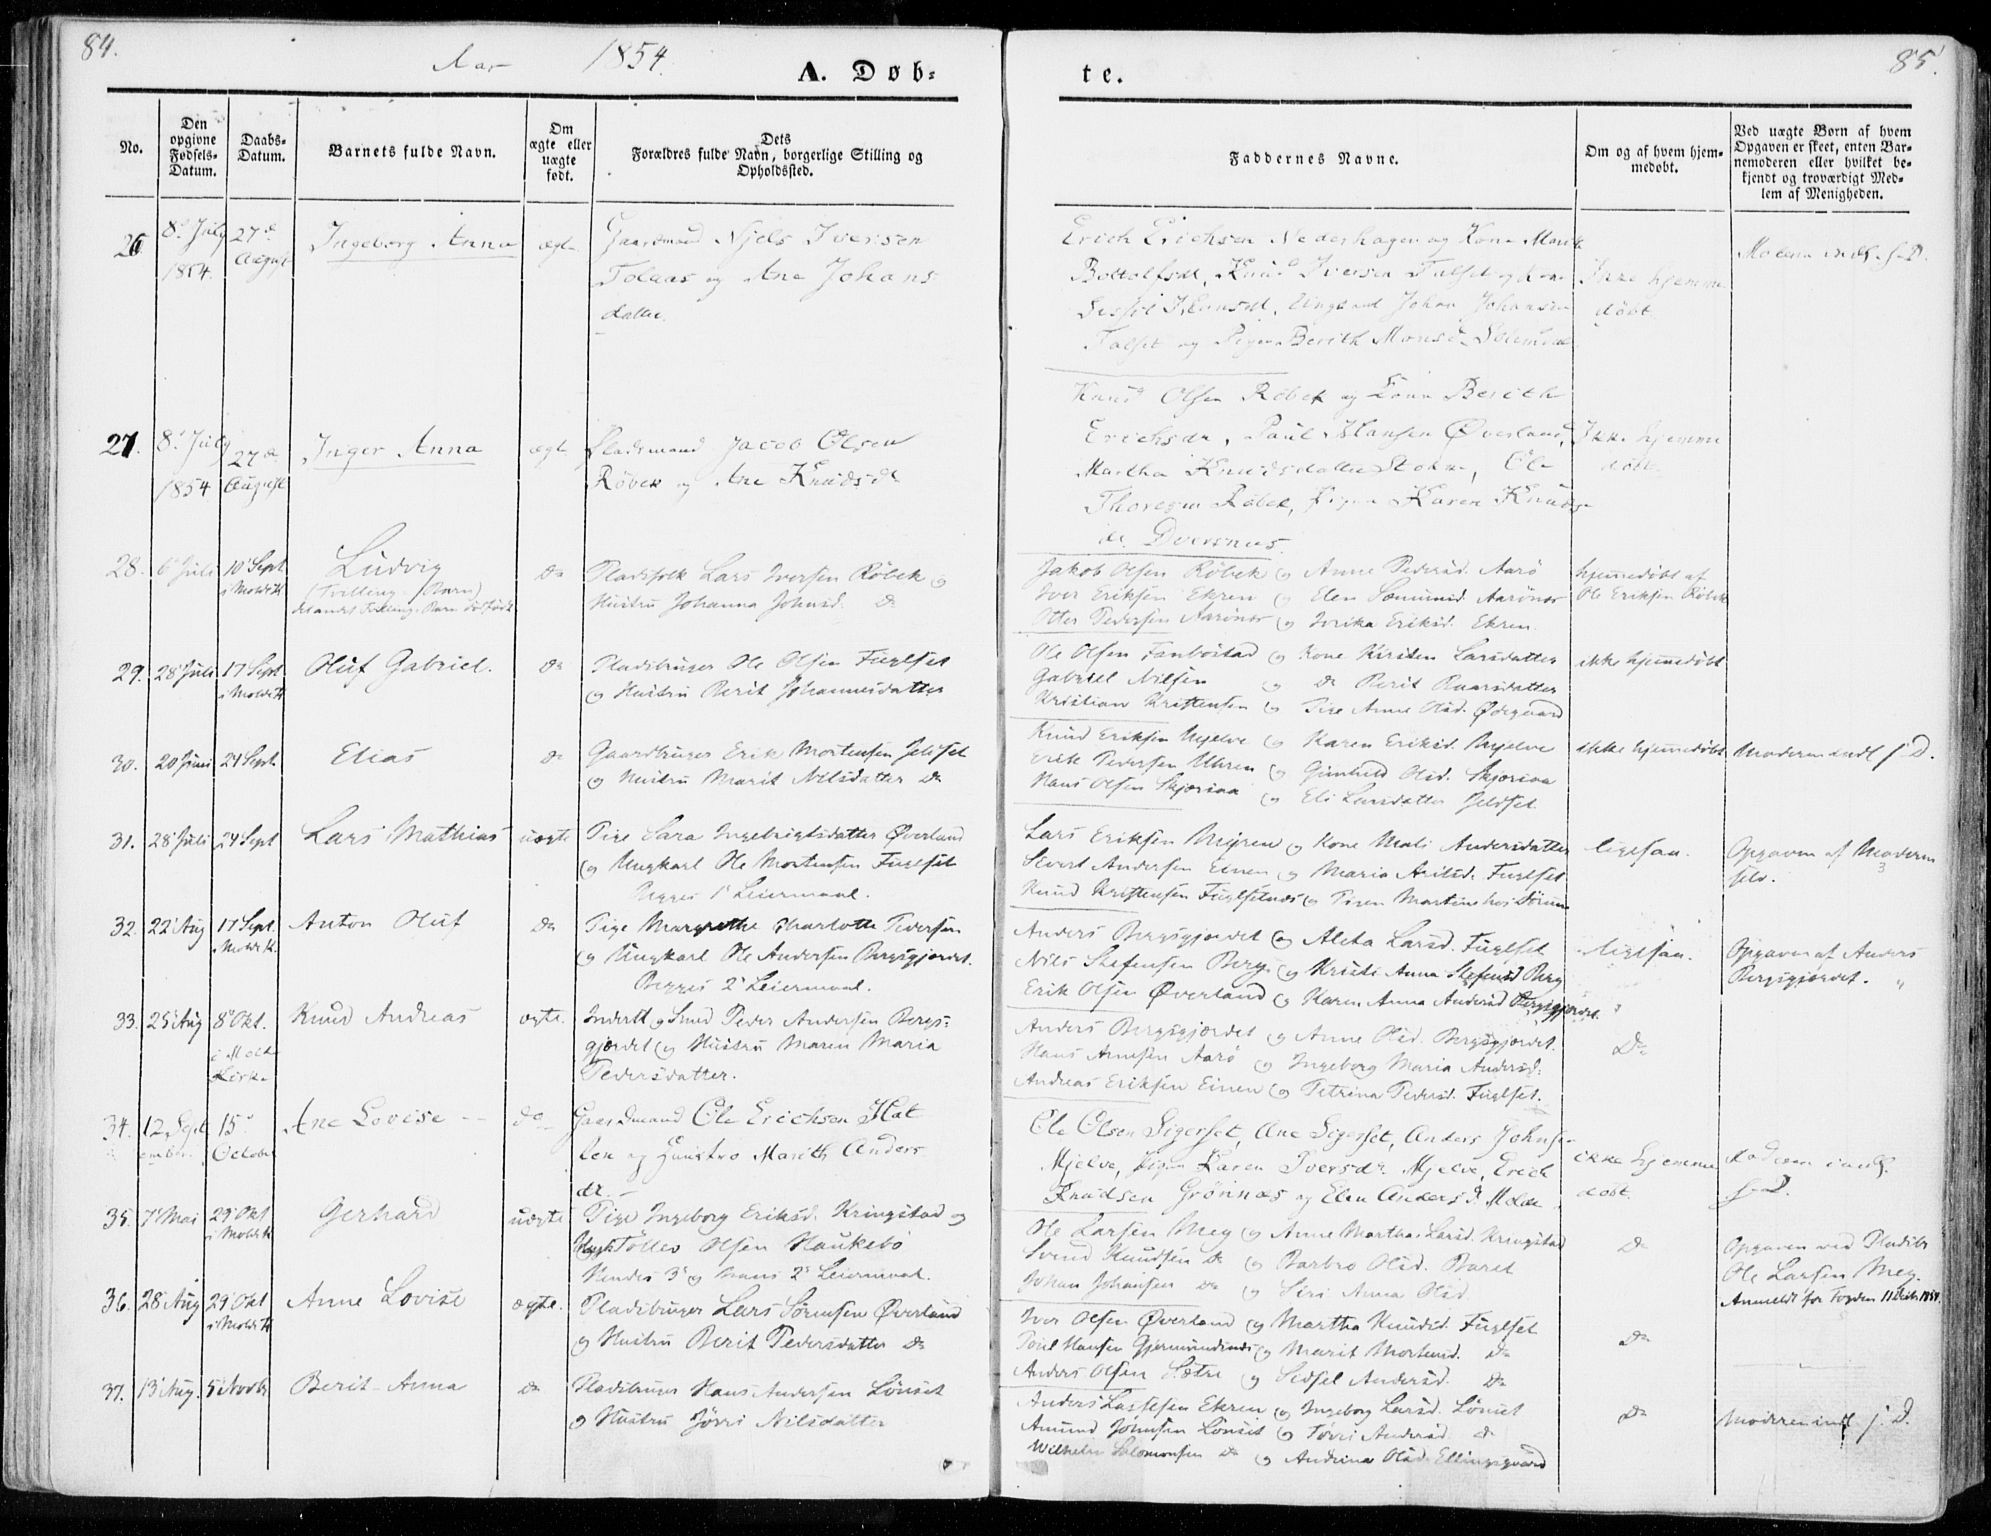 84.
Aar 1854.
A. Døb-
te.
85.
No.
Den opgivne Fødsels-Datum.
Daabs-Datum.
Barnets fulde Navn.
Om ægte eller uægte født.
Dets Forældres fulde Navn, borgerlige Stilling og Opholdssted.
Faddernes Navne.
Om og af hvem hjem-medøbt.
Ved uægte Børn af hvem Opgaven er skeet, enten Bar-nemoderen eller hvilket be-kjendt og troværdigt Med-lem af Menigheden.
26 8d July 1854. 27de August Ingeborg Anna ægte Gaardmand Njels Iversen
Tolaas og Ane Johans
datter.
Erich Erichsen Nederhagen og Kone Marit
Bottolfsdt, Knud Iversen Talset og Kone
Johan Johansen
Talset og Pigen Berith Monsd
Ikke hjemme
døbt.
Moderen indl. f. D.
27. 8d July 1854 27de August Inger Anna ægte Pladsmand Jacob Olsen
Røbek og Ane Knudsdt
Knud Olsen Røbek og Kone Berith
Erichsdr, Paul Hansen Øverland,
Martha Knudsdatter Stokne, Ole
Thoresen Røbek, Pigen Karen Knuds
dt. Dversnes.
Ikke hjemme
døbt
28. 6 Juli 10 Sept i Molde K. Ludvig
(Tvilling-Barn)
det andet Tvilling-Barn dødfødt
Do Pladsfolk Lars Iversen Røbek og
Hustru Johanna Johnsd. Do
Jakob Olsen Røbek og Anne Pedersd. Aarø
Iver Eriksen Ekren og Elen Aarønes
Otter Pedersen Aarønes og Eriksd. Ekren.
hjemmedøbt af
Ole Eriksen Røbek
29. 28 Juli 17 Sept i Molde K. Oluf Gabriel. Do Pladsbruger Ole Olsen Fuglset
og Hustru Berit Johannesdatter
Ole Olsen Fanbostad og Kone Kirsten Larsdatter
Gabriel Nilsen og Do Berit
Kristian Kristensen og Pige Anne Olsd. Ødegaard
ikke hjemmedøbt
30. 20 Juni 24 Sept. Elias Do Gaardbruger Erik Mortensen Jeldset
og Hustru Marit Nilsdatter Do
Knud Eriksen Mjelve og Karen Eriksd. Mjelve
Erik Pedersen Uhren og Gunhild Olsd. Skjørsaa
Hans Olsen Skjørsaa og Eli Larsdatter Jeldset
ikke hjemmedøbt
Moderen indl. f. D.
31. 28 Juli 24 Sept Lars Mathias uægte Pige Sara Ingebrigtsdatter Øverland
og Ungkarl Ole Mortensen Fuglset
Begges 1ste Leiermaal.
Lars Eriksen og Kone Mali Andersdatter
Sivert Andersen Einen og Maria Arildsd. Fuglset
Knud Kristensen Fuglsetnes og Pigen
ligesaa.
Opgaven af Moderen
selv.
32. 22 Aug 17 Sept. i Molde K. Anton Oluf Do Pige Margrethe Charlotte Pedersen
og Ungkarl Ole Andersen Bergsgjerdet.
Begges 2 Leiermaal.
Anders Bergsgjerdet og Aleta Larsd. Fuglset
Nils Stefensen Berg og Kristi Anna Stefensd Berg
Erik Olsen Øverland og Karen Anna Andersd Bergsgjerdet.
ligesaa.
Opgaven af Anders
Bergsgjerdet.
33. 25 Aug 8 Okt. i Molde Kirke Knud Andreas ægte. Inderst og Smed Peder Andersen Bergs-
gjerdet og Hustru Maren Maria
Pedersdatter.
Anders Bergsgjerdet og Anne Olsd. Bergsgjerdet.
Hans Arnesen Aarø og Ingeborg Maria Andersd:
Andreas Eriksen Einen og Petrina Pedersd. Fuglset.
Do
34. 12 September 15de October Ane Lovise do Gaardmand Ole Erichsen Hat
len og Hustro Marith Anders
dt.
Ole Olsen Sigerset, Ane Sigerset, Anders Johnsen
Mjelve, Pigen Karen Iversdr. Mjelve, Erich
Knudsen Grønnæs og Elen Andersd. Molde.
ikke hjemme
døbt.
Moderen indl.
f. D.
35. 7 Mai 29 Okt i Molde K Gerhard uægte Pige Ingeborg Eriksd. Kringstad og
Ungk Tollev Olsen Haukebø
Hendes 3die og hans 2det Leiermaal.
Ole Larsen Meg og Anne Martha Larsd. Kringstad
Svend Knudsen Do og Barbro Olsd.
Johan Johansen Do og Siri Anna Olsd.
Do
Opgaven ved Pladsbr
Ole Larsen Meg.
Anmeldt for Fogden 11 1854.
36. 28 Aug 29 Okt i Molde K Anne Lovise ægte. Pladsbruger Lars Sørensen Øverland
og Hustru Berit Pedersdatter Do
Iver Olsen Øverland og Martha Knudsd. Fuglset
Poul Hansen Gjermundnes og Marit Mortensd. Do
Anders Olsen Sætre og Sidsel Andersd. Do
Do
37. 13 Aug. 5 Novbr Berit Anna Do Pladsbruger Hans Andersen Lønset
og Hustru Nilsdatter
Anders Lassesen Ekren og Ingeborg Larsd. Lønset
Amund Johnsen Lønset og Andersd. Do
Wilhelm Salomonsen Do og Andrina Olsd. Ellingsgaard
Do
Moderen indl. f. D.